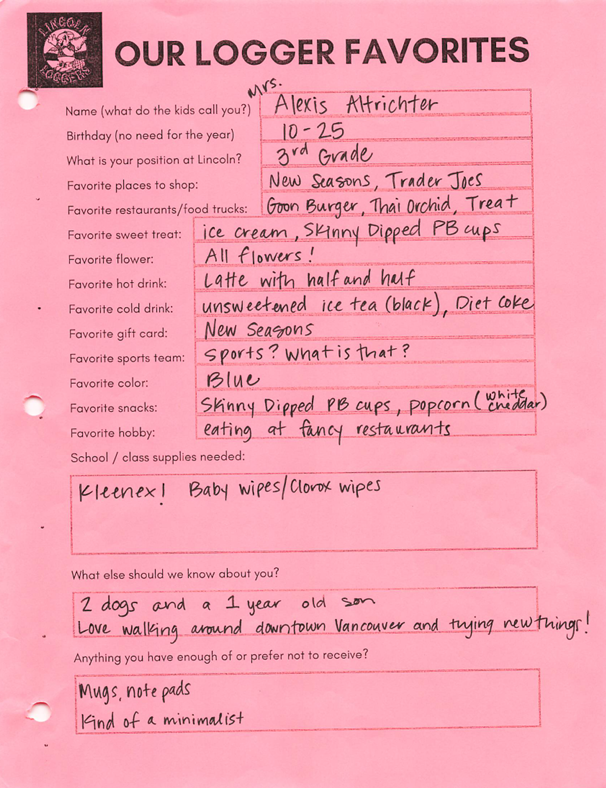 LINCOLN
LOGGERS
OUR LOGGER FAVORITES
Mrs.
Name (what do the kids call you?) Alexis Altrichter
Birthday (no need for the year) 10-25
What is your position at Lincoln? 3rd Grade
Favorite places to shop: New Seasons, Trader Joes
Favorite restaurants/food trucks: Goon Burger, Thai Orchid, Treat
Favorite sweet treat: ice cream, Skinny Dipped PB cups
Favorite flower: All flowers!
Favorite hot drink: Latte with half and half
Favorite cold drink: unsweetened ice tea (black), Diet Coke
Favorite gift card: New Seasons
Favorite sports team: Sports? What is that?
Favorite color: Blue
Favorite snacks: Skinny Dipped PB cups, popcorn (white cheddar)
Favorite hobby: eating at fancy restaurants
School / class supplies needed:
Kleenex! Baby wipes/Clorox wipes
What else should we know about you?
2 dogs and a 1 year old son
Love walking around downtown Vancouver and trying new things!
Anything you have enough of or prefer not to receive?
Mugs, note pads
Kind of a minimalist